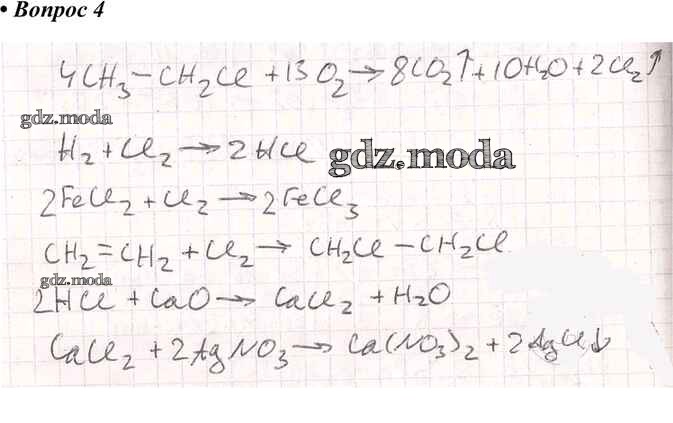 • Вопрос 4
4CH₃–CH₂Cl + 13O₂ → 8CO₂↑ + 10H₂O + 2Cl₂↑
gdz.moda
H₂ + Cl₂ → 2HCl gdz.moda
2FeCl₂ + Cl₂ → 2FeCl₃
CH₂=CH₂ + Cl₂ → CH₂Cl–CH₂Cl
gdz.moda
2HCl + CaO → CaCl₂ + H₂O
CaCl₂ + 2AgNO₃ → Ca(NO₃)₂ + 2AgCl↓